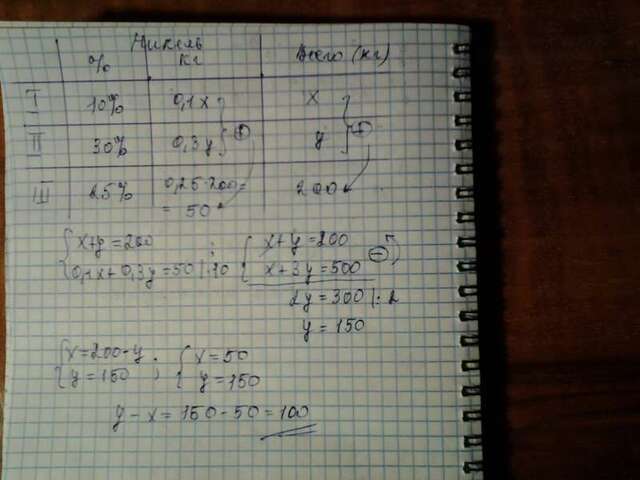 Никель
% кг Всего (кг)
I 10% 0,1x x
II 30% 0,3y + y +
III 25% 0,25·200= 200
= 50
{x+y=200 ; {x+y=200
0,1x+0,3y=50 |·10 x+3y=500 −
2y=300 |:2
y=150
{x=200-y ; {x=50
y=150 y=150
y-x=150-50=100